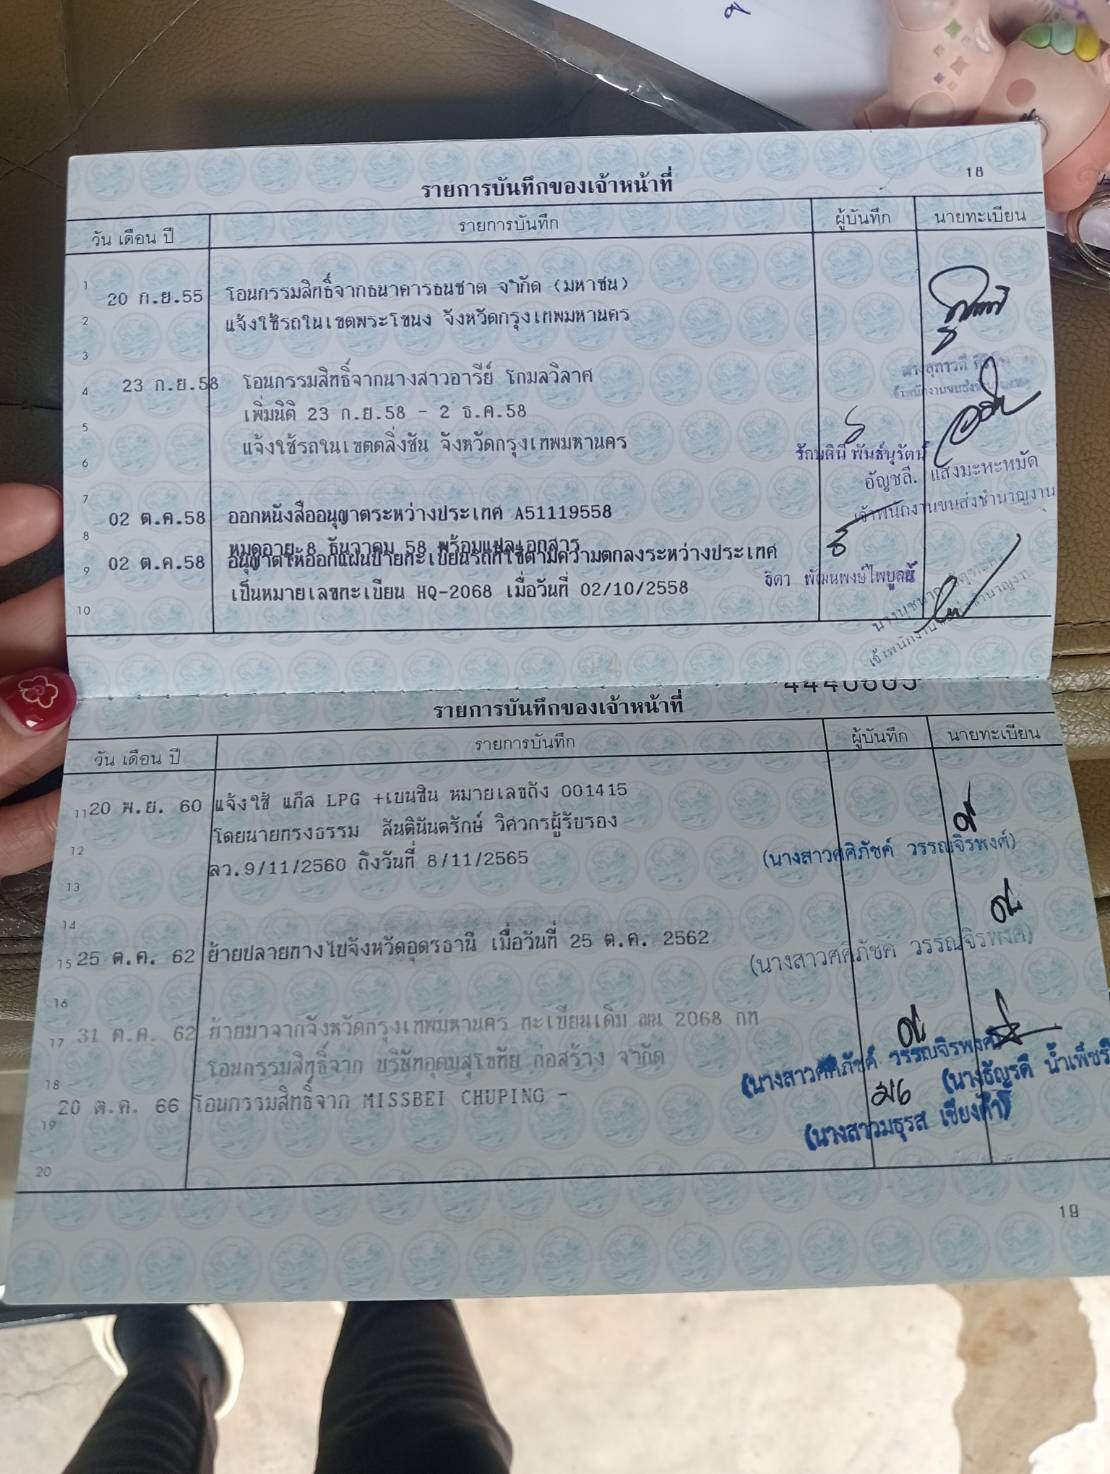 18
รายการบันทึกของเจ้าหน้าที่
วัน เดือน ปี รายการบันทึก ผู้บันทึก นายทะเบียน
1
20 ก.ย.55 โอนกรรมสิทธิ์จากธนาคารธนชาต จำกัด (มหาชน)
2 แจ้งใช้รถในเขตพระโขนง จังหวัดกรุงเทพมหานคร
3
4 23 ก.ย.58 โอนกรรมสิทธิ์จากนางสาวอารีย์ โกมลวิลาศ
เพิ่มนิติ 23 ก.ย.58 - 2 ธ.ค.58
5
6 แจ้งใช้รถในเขตตลิ่งชัน จังหวัดกรุงเทพมหานคร
รักมตินี พันธ์นุรัตน์
อัญชลี. แสงมะหะหมัด
เจ้าพนักงานขนส่งชำนาญงาน
7
02 ต.ค.58 ออกหนังสืออนุญาตระหว่างประเทศ A51119558
8 หมดอายุ 8 ธันวาคม 58 พร้อมแปลเอกสาร
9 02 ต.ค.58 อนุญาตให้ออกแผ่นป้ายทะเบียนรถที่ใช้ตามความตกลงระหว่างประเทศ
เป็นหมายเลขทะเบียน HQ-2068 เมื่อวันที่ 02/10/2558
ธิดา พัฒนพงษ์ไพบูลย์
10
รายการบันทึกของเจ้าหน้าที่
วัน เดือน ปี รายการบันทึก ผู้บันทึก นายทะเบียน
11 20 พ.ย. 60 แจ้งใช้ แก๊ส LPG +เบนซิน หมายเลขถัง 001415
12 โดยนายทรงธรรม สันตินันตรักษ์ วิศวกรผู้รับรอง
13 ลว.9/11/2560 ถึงวันที่ 8/11/2565
(นางสาวศศิภัชค์ วรรณจิรพงศ์)
14
15 25 ต.ค. 62 ย้ายปลายทางไปจังหวัดอุดรธานี เมื่อวันที่ 25 ต.ค. 2562
(นางสาวศศิภัชค์ วรรณจิรพงศ์)
16
17 31 ต.ค. 62 ย้ายมาจากจังหวัดกรุงเทพมหานคร ทะเบียนเดิม ฌน 2068 กท
18 โอนกรรมสิทธิ์จาก บริษัทอุดมสุโขทัย ก่อสร้าง จำกัด
(นางสาวศศิภัชค์ วรรณจิรพงศ์)
(นางธัญรดี น้ำเพ็ชร์
20 ต.ค. 66 โอนกรรมสิทธิ์จาก MISSBEI CHUPING -
19
(นางสาวมธุรส เชียงคำ)
20
19